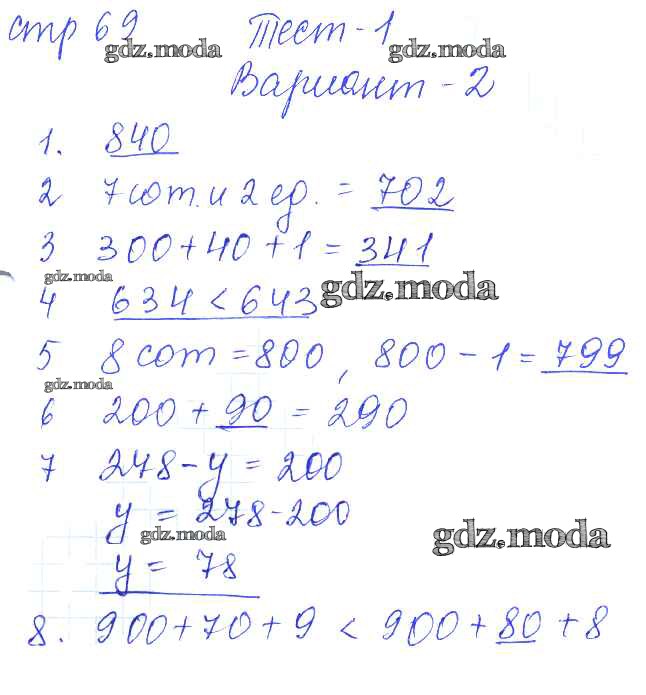 стр 69 Тест-1
gdz.moda gdz.moda
Вариант-2
1. 840
2 7 сот. и 2 ед. = 702
3 300+40+1=341
gdz.moda
4 634<643 gdz.moda
5 8 сот=800, 800-1=799
gdz.moda
6 200+90=290
7 278-y=200
y=278-200
gdz.moda gdz.moda
y=78
8. 900+70+9 < 900+80+8